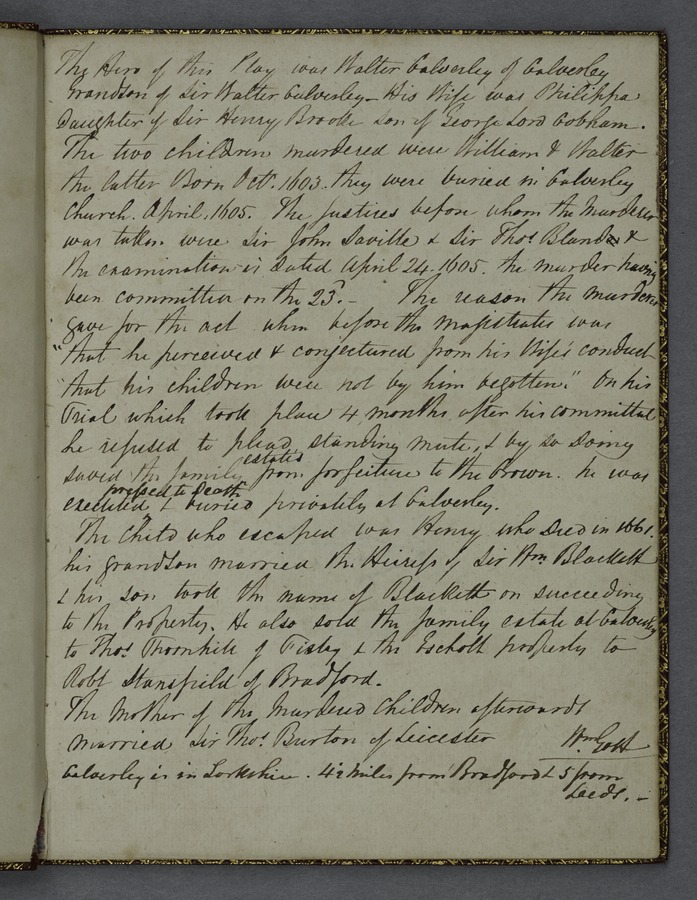 The Hero of this Play was Walter Calverley of Calverley
Grandson of Sir Walter Calverley - His Wife was Philippa
Daughter of Sir Henry Brooke son of George Lord Cobham.
The two children murdered were William & Walter
the latter Born Oct. 1603. they were buried in Calverley
Church. April. 1605. The justices before whom the Murderer
was taken were Sir John Saville & Sir Thos. Bland &
the examination is dated April 24. 1605. the murder having
been committed on the 23d. - The reason the murderer
gave for the act when before the magistrates was
"that he perceived & conjectured from his Wife's conduct
"that his children were not by him begotten." On his
Trial which took place 4 months after his committal
he refused to plead, standing mute, & by so doing
saved the family estates from forfeiture to the Crown. he was
pressed to death
executed & buried privately at Calverley.
The Child who escaped was Henry who Died in 1661.
his grandson married the Heiress of Sir Wm Blackett
& his son took the name of Blackett on succeeding
to the Property. He also sold the family estate at Calverley
to Thos. Thornhill of Fixby & the Escholt property to
Robt Stansfield of Bradford.
The Mother of the Murdered Children afterwards
married Sir Thos. Burton of Leicester Wm Gott
Calverley is in Yorkshire. 4½ miles from Bradford & 5 from
Leeds. -